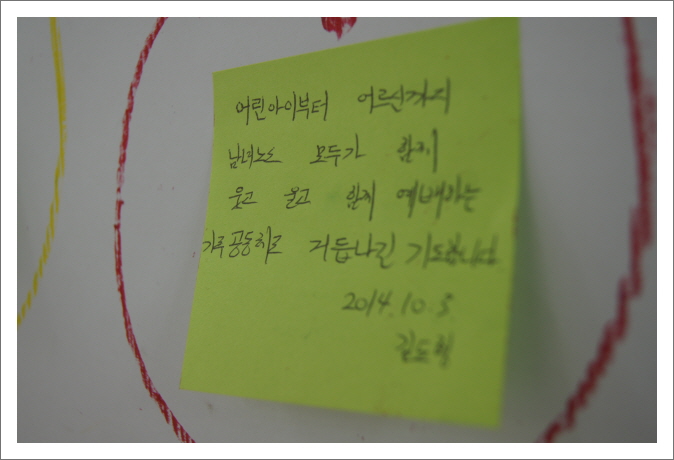 어린아이부터 어르신까지
남녀노소 모두가 함께
웃고 울고 함께 예배하는
공동체로 거듭나길 기도합니다
2014.10.5